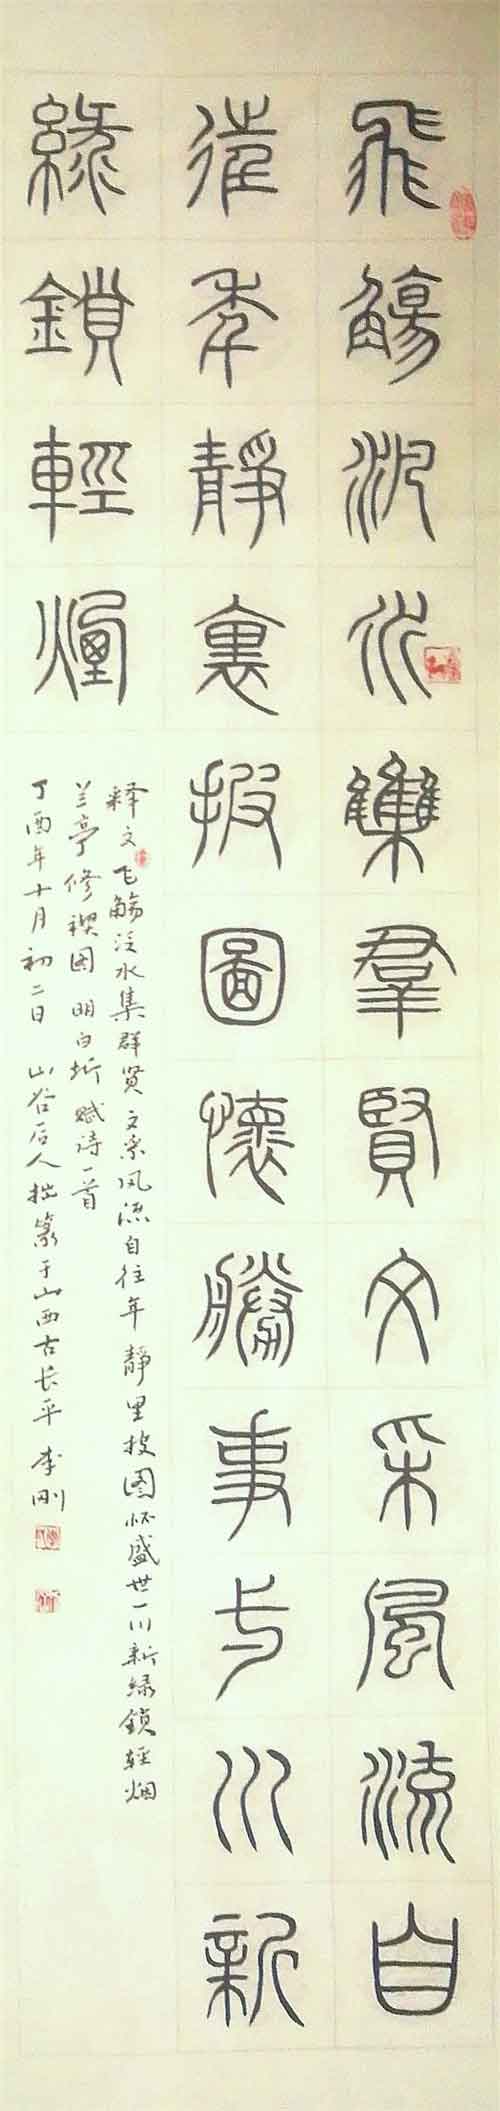 飛觴汎水雧羣賢文采風流自
往秊靜裏披圖懷勝事弌川新
綠鎖輕煙
释文 飞觞泛水集群贤 文采风流自往年 静里披图怀盛世 一川新绿锁轻烟
兰亭修禊图 明白圻 赋诗一首
丁酉年十月初二日 山谷后人拙篆于山西古长平 李刚